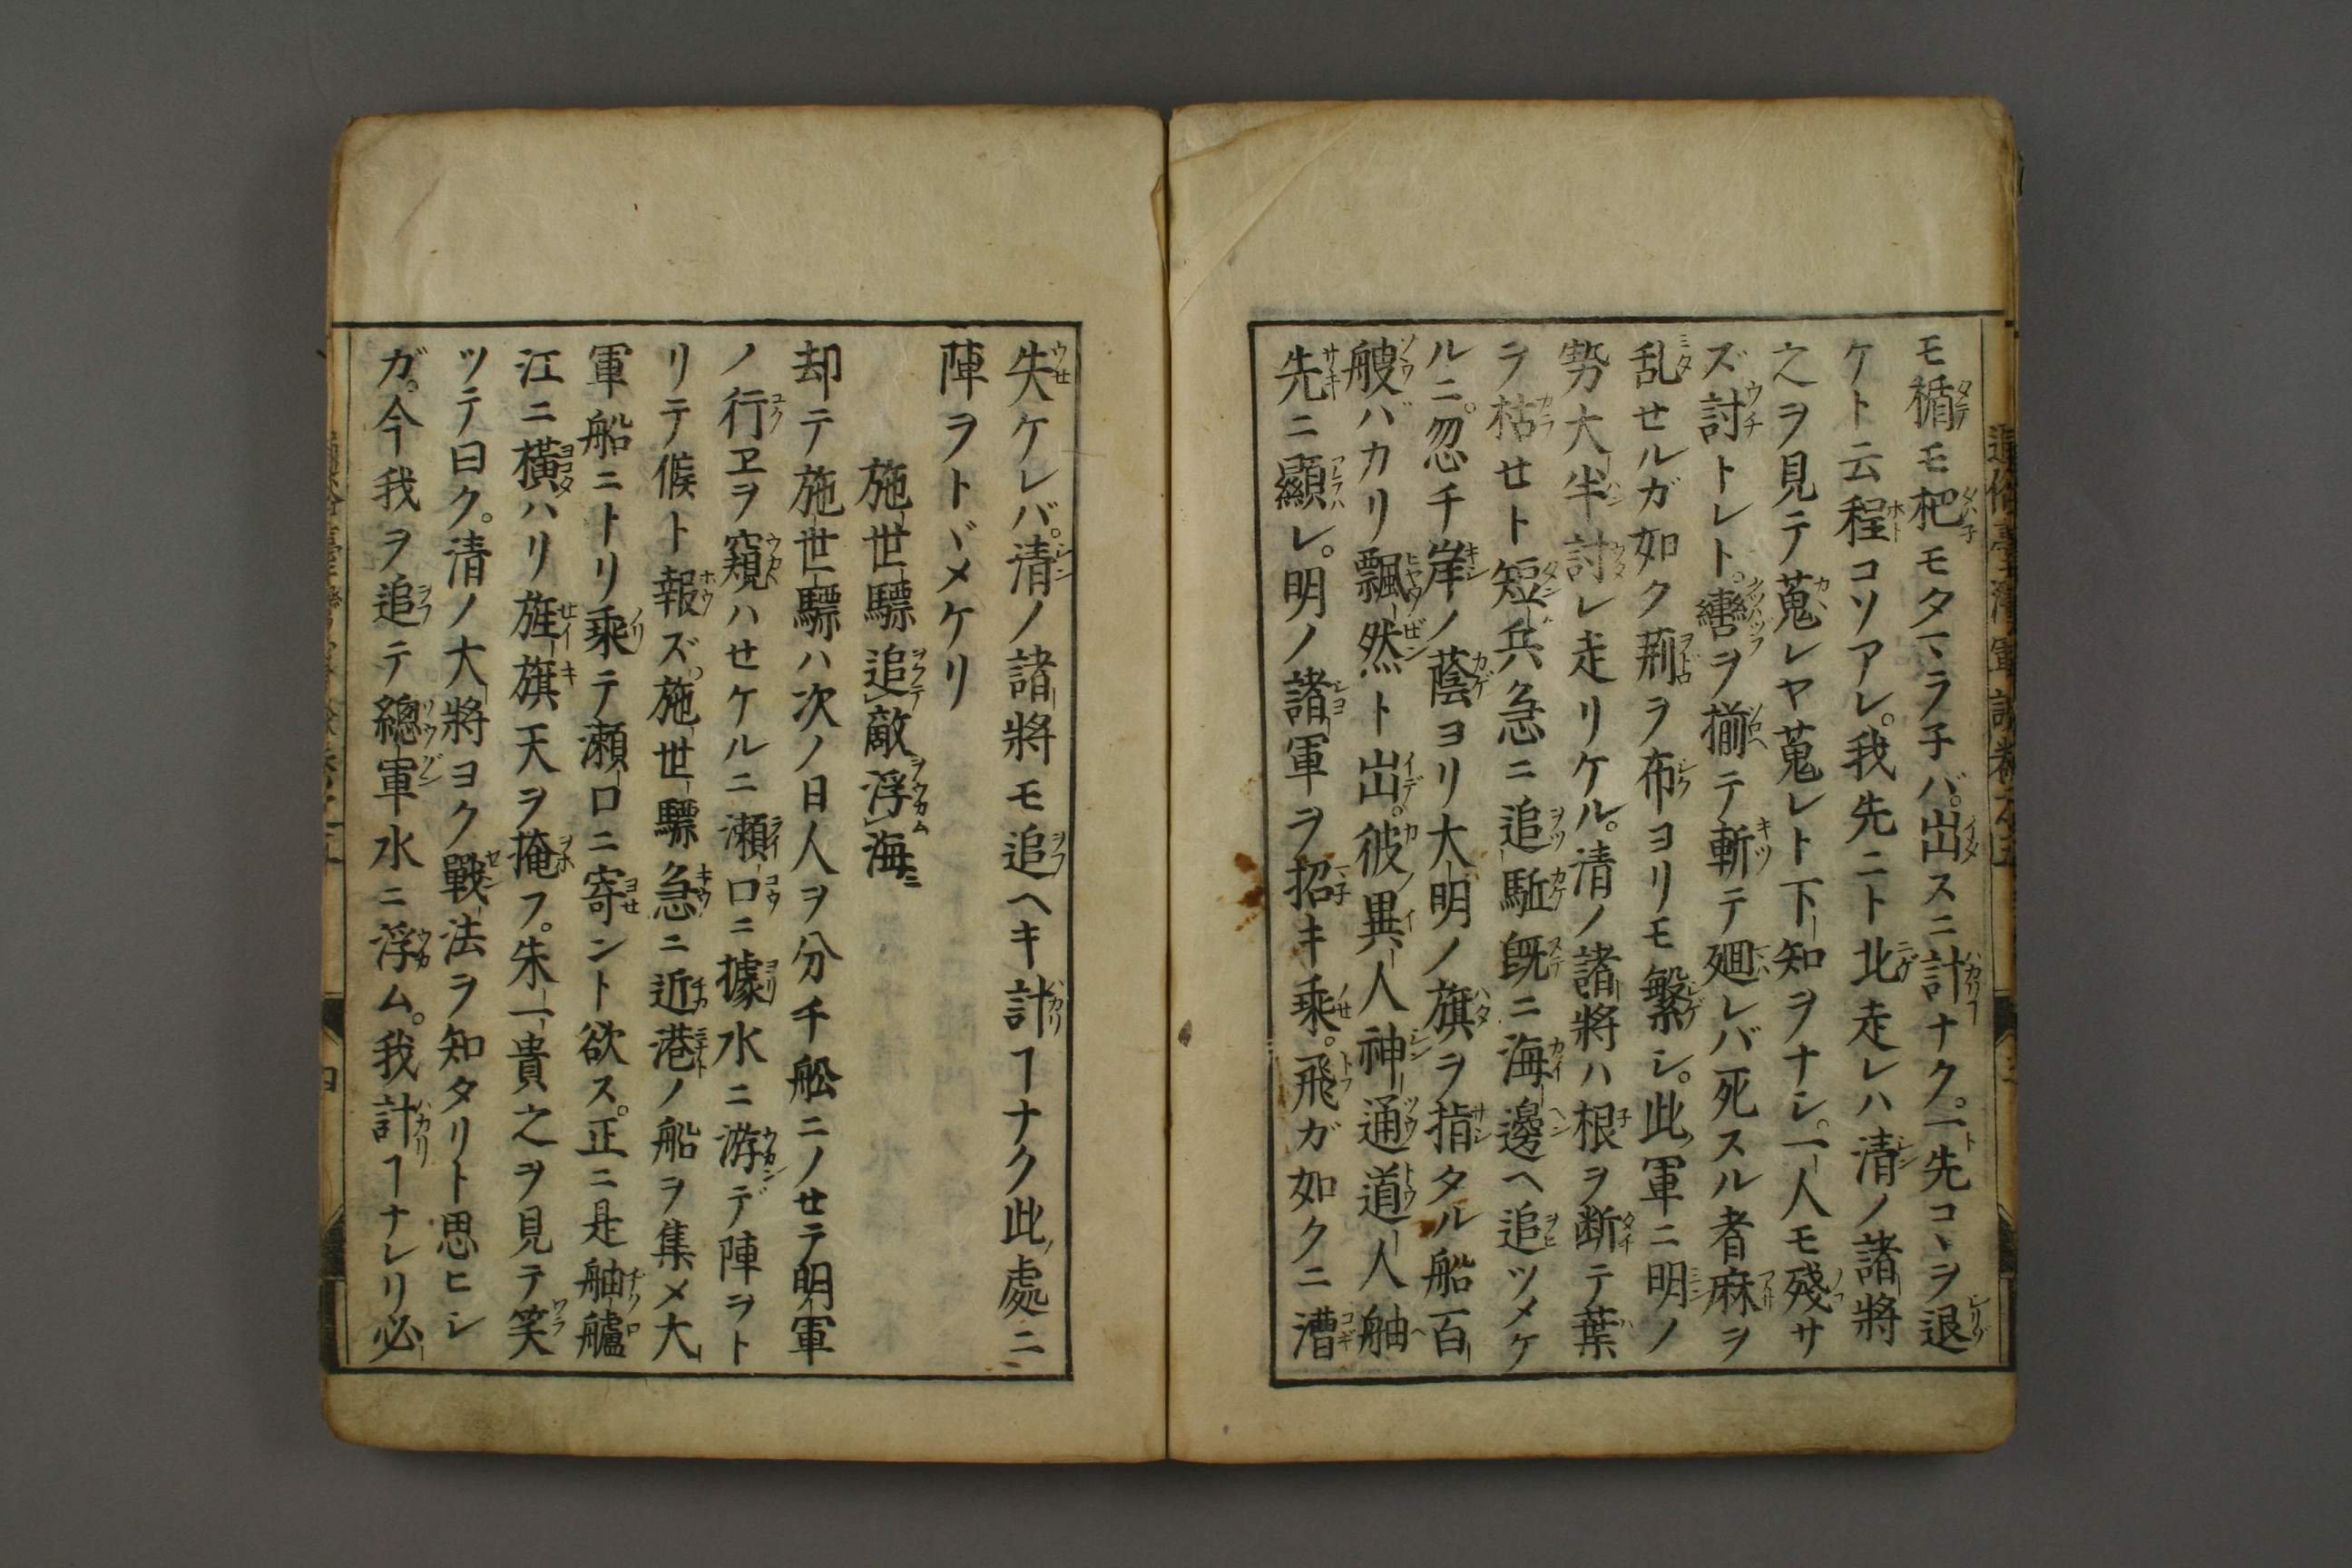 モ楯モ杷モタマラ子バ。出スニ計ナク。一先コヽヲ退
ケト云程コソアレ。我先ニト北走レハ清ノ諸將
之ヲ見テ蒐レヤ蒐レト下知ヲナシ。一人モ殘サ
ズ討トレト。轡ヲ揃テ斬テ廻レバ死スル者麻ヲ
乱セルガ如ク荊ヲ布ヨリモ繁シ。此軍ニ明ノ
勢大半討レ走リケル。清ノ諸將ハ根ヲ断テ葉
ヲ枯セト短兵急ニ追駈既ニ海邊ヘ追ツメケ
ルニ。忽チ岸ノ蔭ヨリ大明ノ旗ヲ指タル船百
艘バカリ飄然ト出。彼異人神通道人舳
先ニ顯レ。明ノ諸軍ヲ招キ乘。飛ガ如クニ漕
失ケレバ。清ノ諸將モ追ヘキ計ヿナク此處ニ
陣ヲトヾメケリ
施世驃追敵浮海
却テ施世驃ハ次ノ日人ヲ分千舩ニノセテ明軍
ノ行ヱヲ窺ハセケルニ瀬口ニ據水ニ游デ陣ヲト
リテ候ト報ズ。施世驃急ニ近港ノ船ヲ集メ大
軍船ニトリ乘テ瀬口ニ寄ント欲ス。正ニ是舳艫
江ニ横ハリ旌旗天ヲ掩フ。朱一貴之ヲ見テ笑
ツテ曰ク。清ノ大將ヨク戰法ヲ知タリト思ヒシ
ガ。今我ヲ追テ總軍水ニ浮ム。我計ヿナレリ必